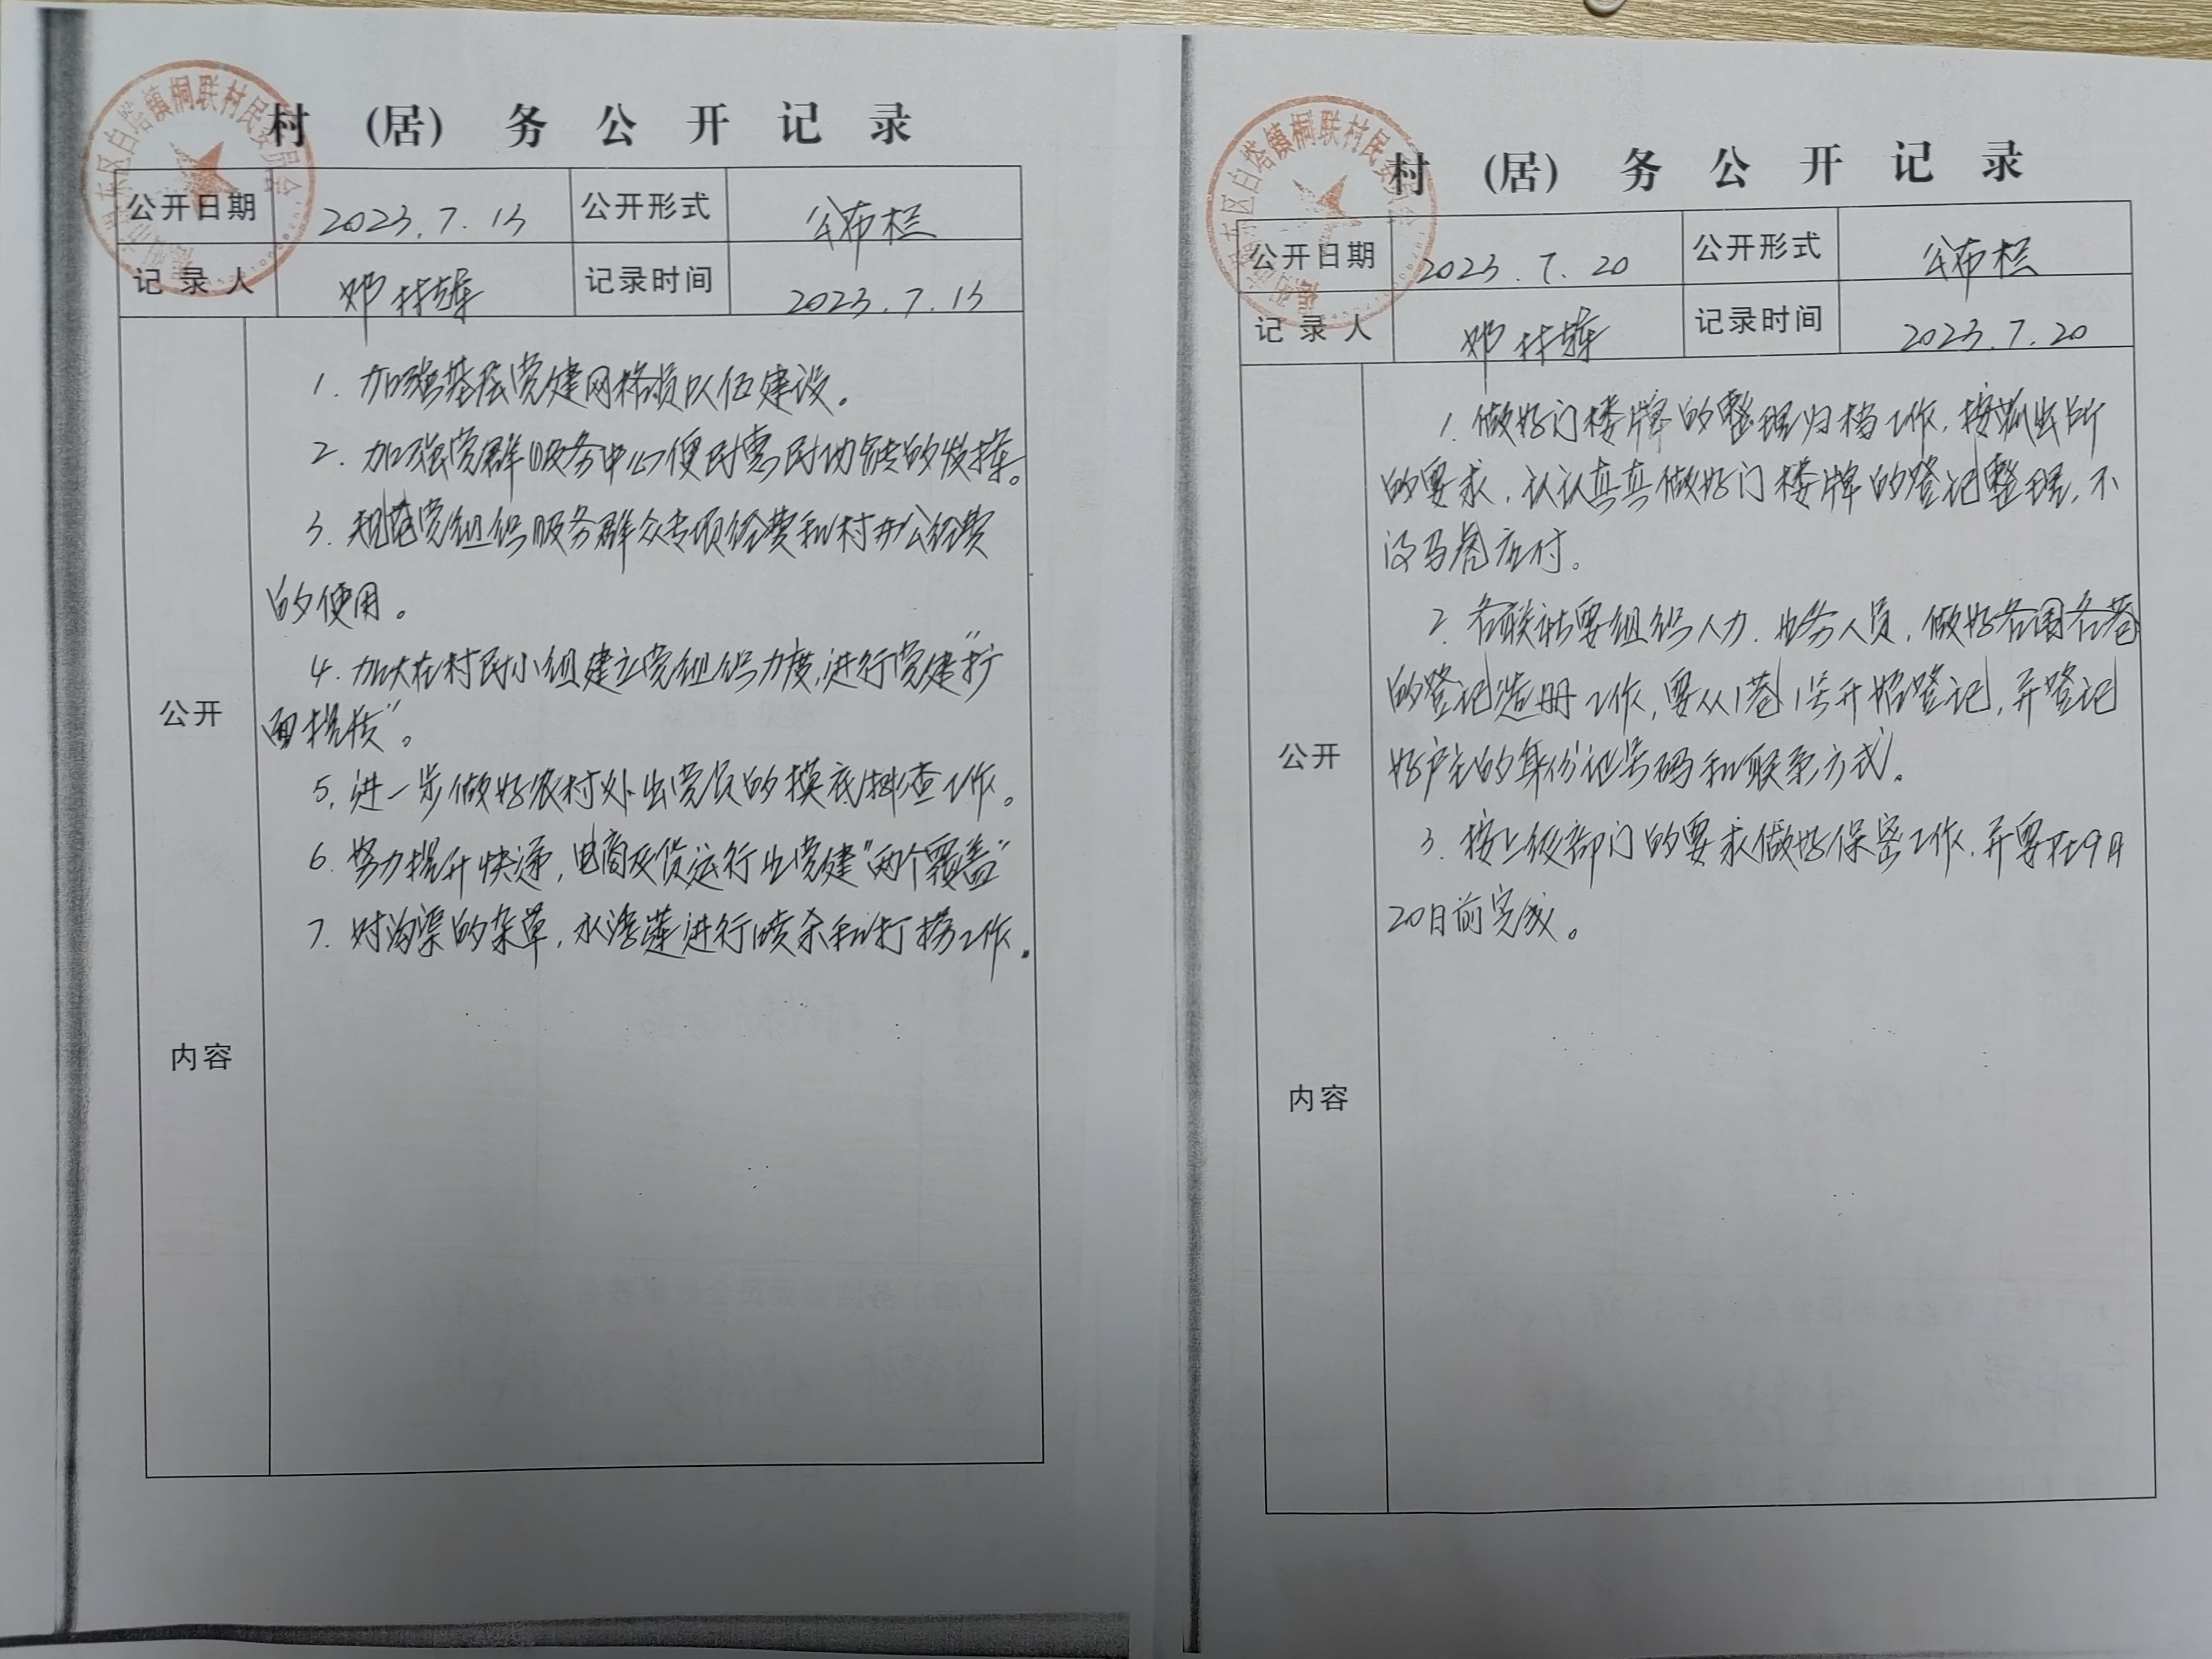 村 (居) 务 公 开 记 录
公开日期 2023.7.13 公开形式 公布栏
记 录 人 记录时间 2023.7.13
公开
内容
1. 加强基层党建网格员队伍建设。
2. 加强党群服务中心便民惠民功能的发挥。
3. 规范党组织服务群众专项经费和村办公经费
的使用。
4. 加大在村民小组建立党组织力度,进行党建"扩
面提质"。
5. 进一步做好农村外出党员的摸底排查工作。
6. 努力提升快递,电商及货运行业党建"两个覆盖"
7. 对沟渠的杂草,水浮莲进行喷杀和打捞工作.
村 (居) 务 公 开 记 录
公开日期 2023.7.20 公开形式 公布栏
记 录 人 记录时间 2023.7.20
公开
内容
1. 做好门楼牌的整理归档工作,按派出所
的要求,认认真真做好门楼牌的登记整理,不
马虎应付。
2. 各联社要组织人力.业务人员,做好各围各巷
的登记造册工作,要从1巷1号开始登记,并登记
好户主的身份证号码和联系方式。
3. 按上级部门的要求做好保密工作.并要在9月
20日前完成。
白塔镇桐联村民委员会
白塔镇桐联村民委员会